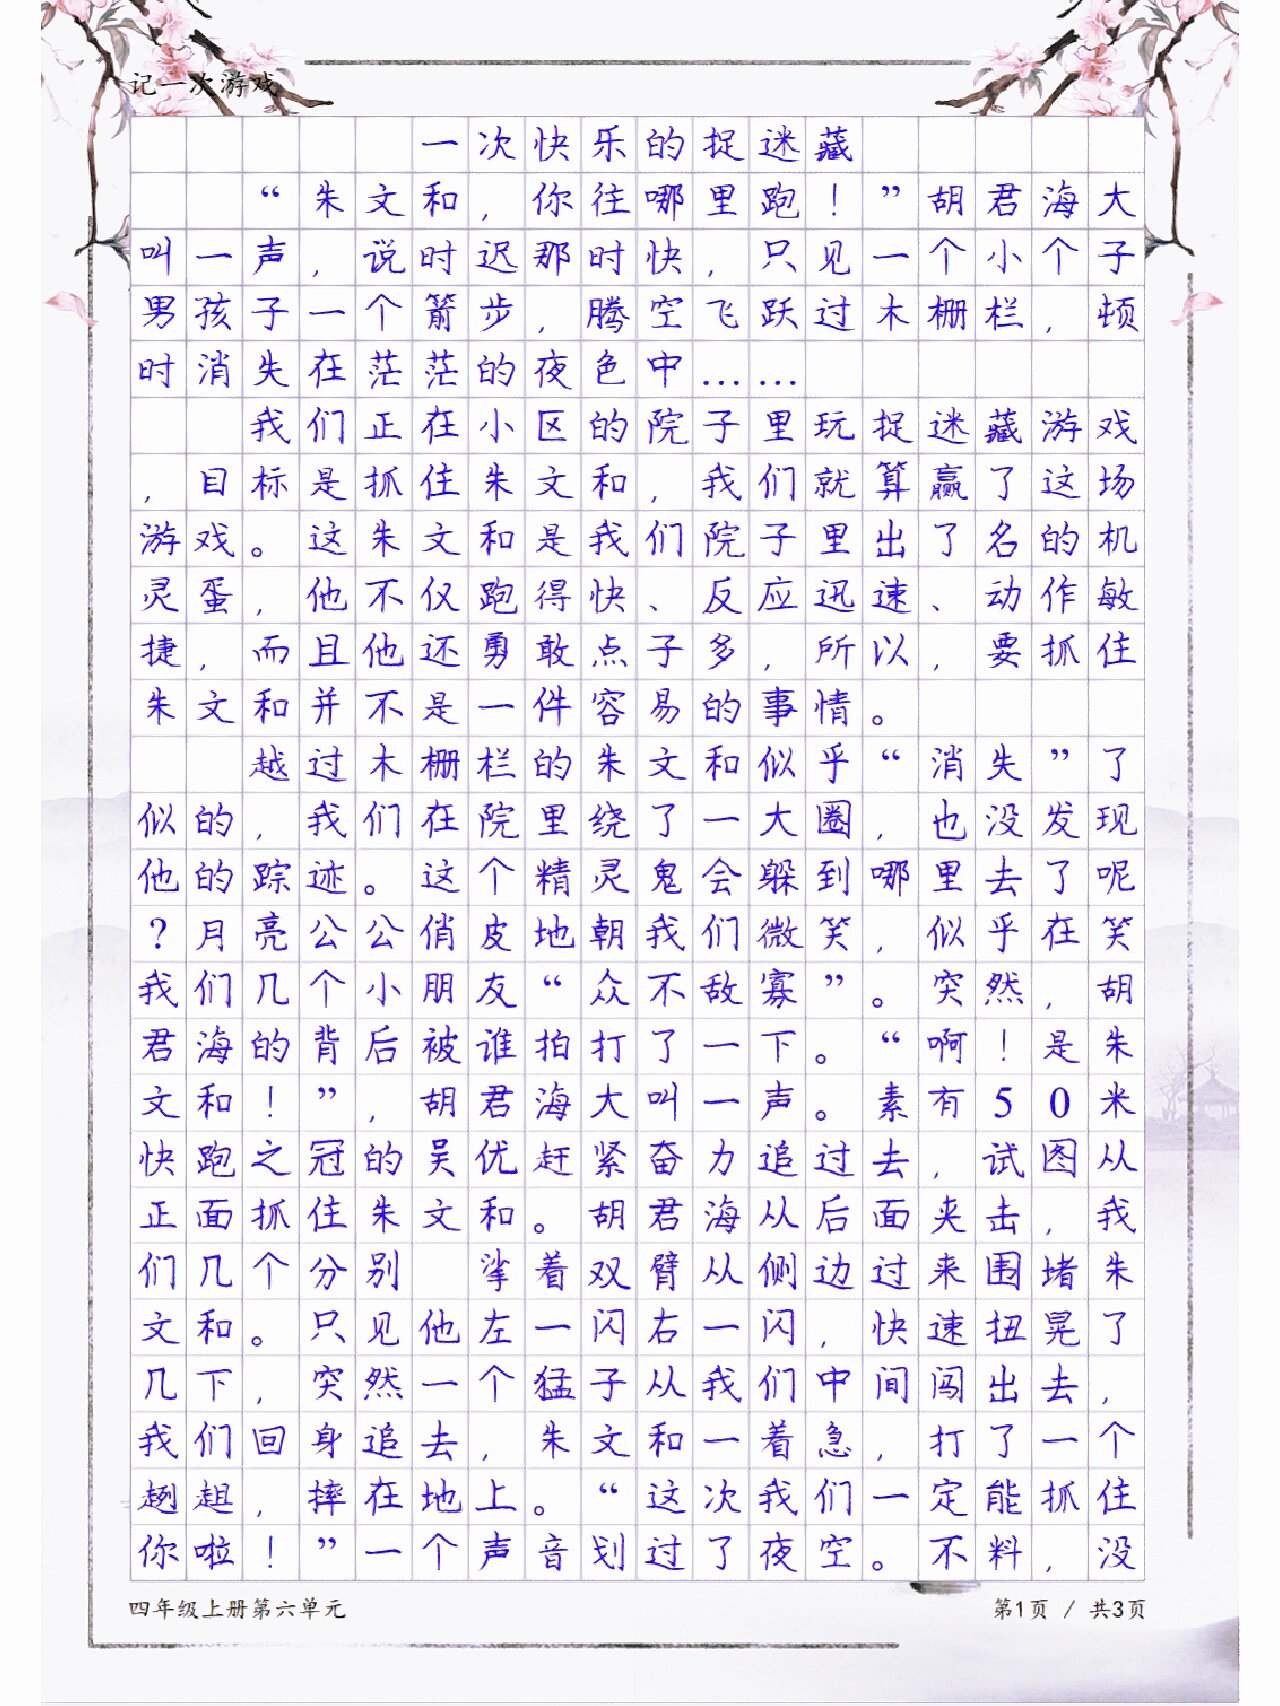 记一次游戏
一次快乐的捉迷藏
“朱文和，你往哪里跑！”胡君海大
叫一声，说时迟那时快，只见一个小个子
男孩子一个箭步，腾空飞跃过木栅栏，顿
时消失在茫茫的夜色中……
我们正在小区的院子里玩捉迷藏游戏
，目标是抓住朱文和，我们就算赢了这场
游戏。这朱文和是我们院子里出了名的机
灵蛋，他不仅跑得快、反应迅速、动作敏
捷，而且他还勇敢点子多，所以，要抓住
朱文和并不是一件容易的事情。
越过木栅栏的朱文和似乎“消失”了
似的，我们在院里绕了一大圈，也没发现
他的踪迹。这个精灵鬼会躲到哪里去了呢
？月亮公公俏皮地朝我们微笑，似乎在笑
我们几个小朋友“众不敌寡”。突然，胡
君海的背后被谁拍打了一下。“啊！是朱
文和！”，胡君海大叫一声。素有50米
快跑之冠的吴优赶紧奋力追过去，试图从
正面抓住朱文和。胡君海从后面夹击，我
们几个分别 挲着双臂从侧边过来围堵朱
文和。只见他左一闪右一闪，快速扭晃了
几下，突然一个猛子从我们中间闯出去，
我们回身追去，朱文和一着急，打了一个
趔趄，摔在地上。“这次我们一定能抓住
你啦！”一个声音划过了夜空。不料，没
四年级上册第六单元
第1页 / 共3页